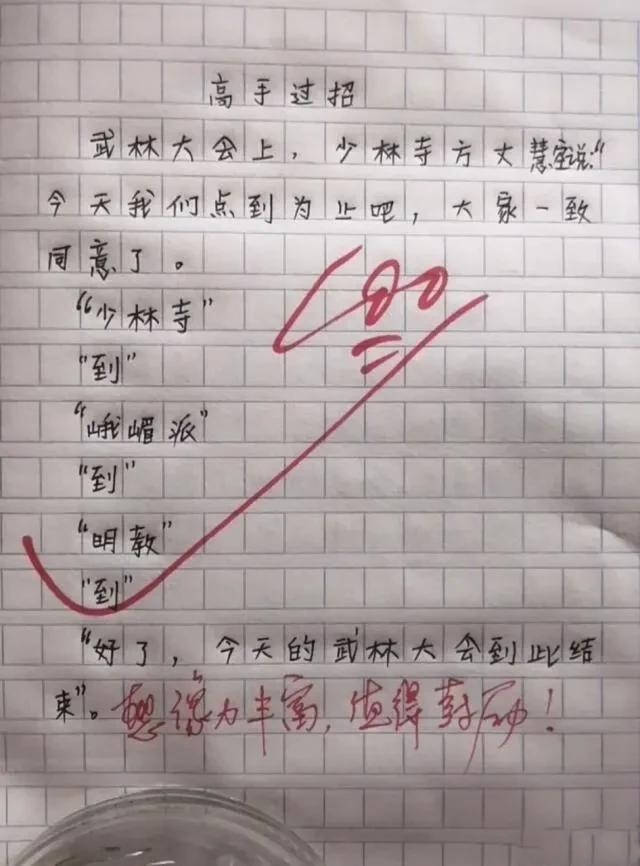 高手过招
武林大会上，少林寺方丈慧空说："
今天我们点到为止吧，大家一致
同意了。
"少林寺"
"到"
"峨嵋派"
"到"
"明教"
"到"
"好了，今天的武林大会到此结
束"。
100
想像力丰富，值得鼓励！